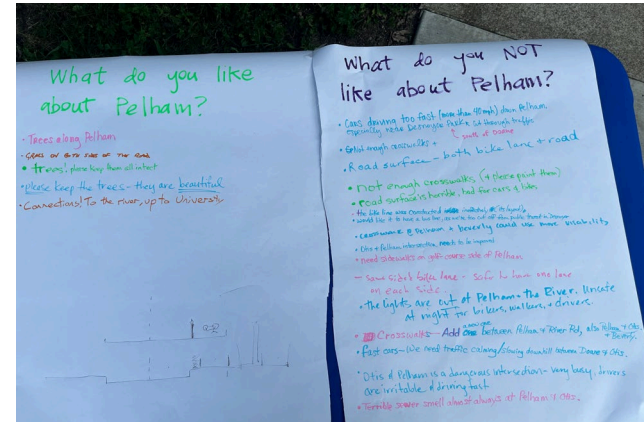 What do you like
about Pelham?
- Trees along Pelham
- GRASS ON BOTH SIDE OF THE ROAD
- trees! please keep them all intact
- please keep the trees - they are beautiful
- Connections! To the river, up to University.
What do you NOT
like about Pelham?
- Cars driving too fast (more than 40 mph) down Pelham
especially near Desnoyer Park + cut through traffic
south of Doane
- not enough crosswalks +
- Road surface - both bike lane + road
- not enough crosswalks (+ please paint them)
- road surface is horrible, bad for cars + bikes
- the bike line area constructed
- crosswalk @ Pelham + Beverly could use more visability
- Otis + Pelham intersection needs to be improved
- need sidewalks on golf course side of Pelham
- same sided bike lane - safer to have one lane
on each side.
- the lights are out at Pelham + The River. Unsafe
at night for bikers, walkers, + drivers.
- Crosswalks - Add one between Pelham & River Rd, also Pelham & Otis
+ Beverly.
- fast cars - We need traffic calming/slowing downhill between Doane & Otis.
- Otis & Pelham is a dangerous intersection - very busy, drivers
are irritable & driving fast
- Terrible sewer smell almost always at Pelham & Otis.